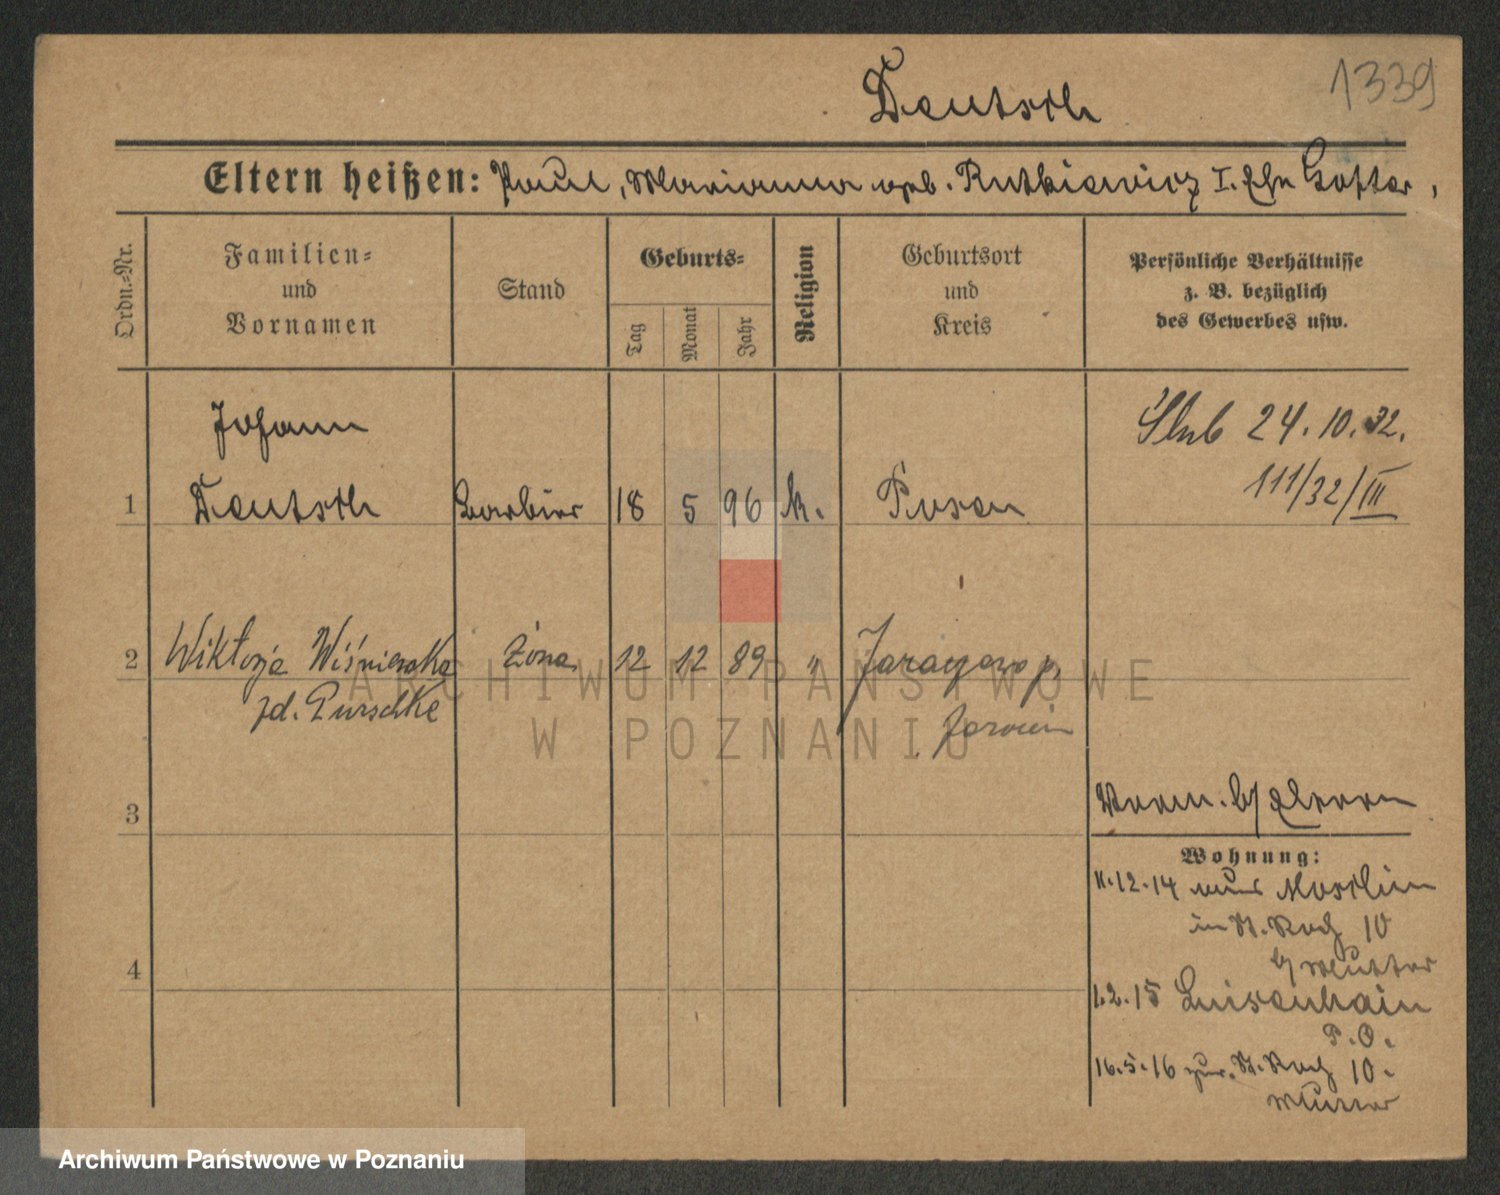 1339
Deutsch
Eltern heißen: Paul, Marianna geb. Rutkiewicz I. Ehe
Ordn.-Nr.
Familien-
und
Vornamen
Stand
Geburts-
Tag
Monat
Jahr
Religion
Geburtsort
und
Kreis
Persönliche Verhältnisse
z. B. bezüglich
des Gewerbes usw.
Johann
1 Deutsch Barbier 18 5 96 k. Posen
Ślub 24.10.32.
111/32/III
2 Wiktorja Wiśniewska żona 12 12 89 " Jaraczewo p.
zd. Purschke Jarocin
3
Vorm. b/ Eltern
Wohnung:
11.12.14 aus
in St. Roch 10
b/ Mutter
4
1.2.15 Luisenhain
P.O.
16.5.16 zur. St. Roch 10.
Mutter
ARCHIWUM PAŃSTWOWE
W POZNANIU
Archiwum Państwowe w Poznaniu